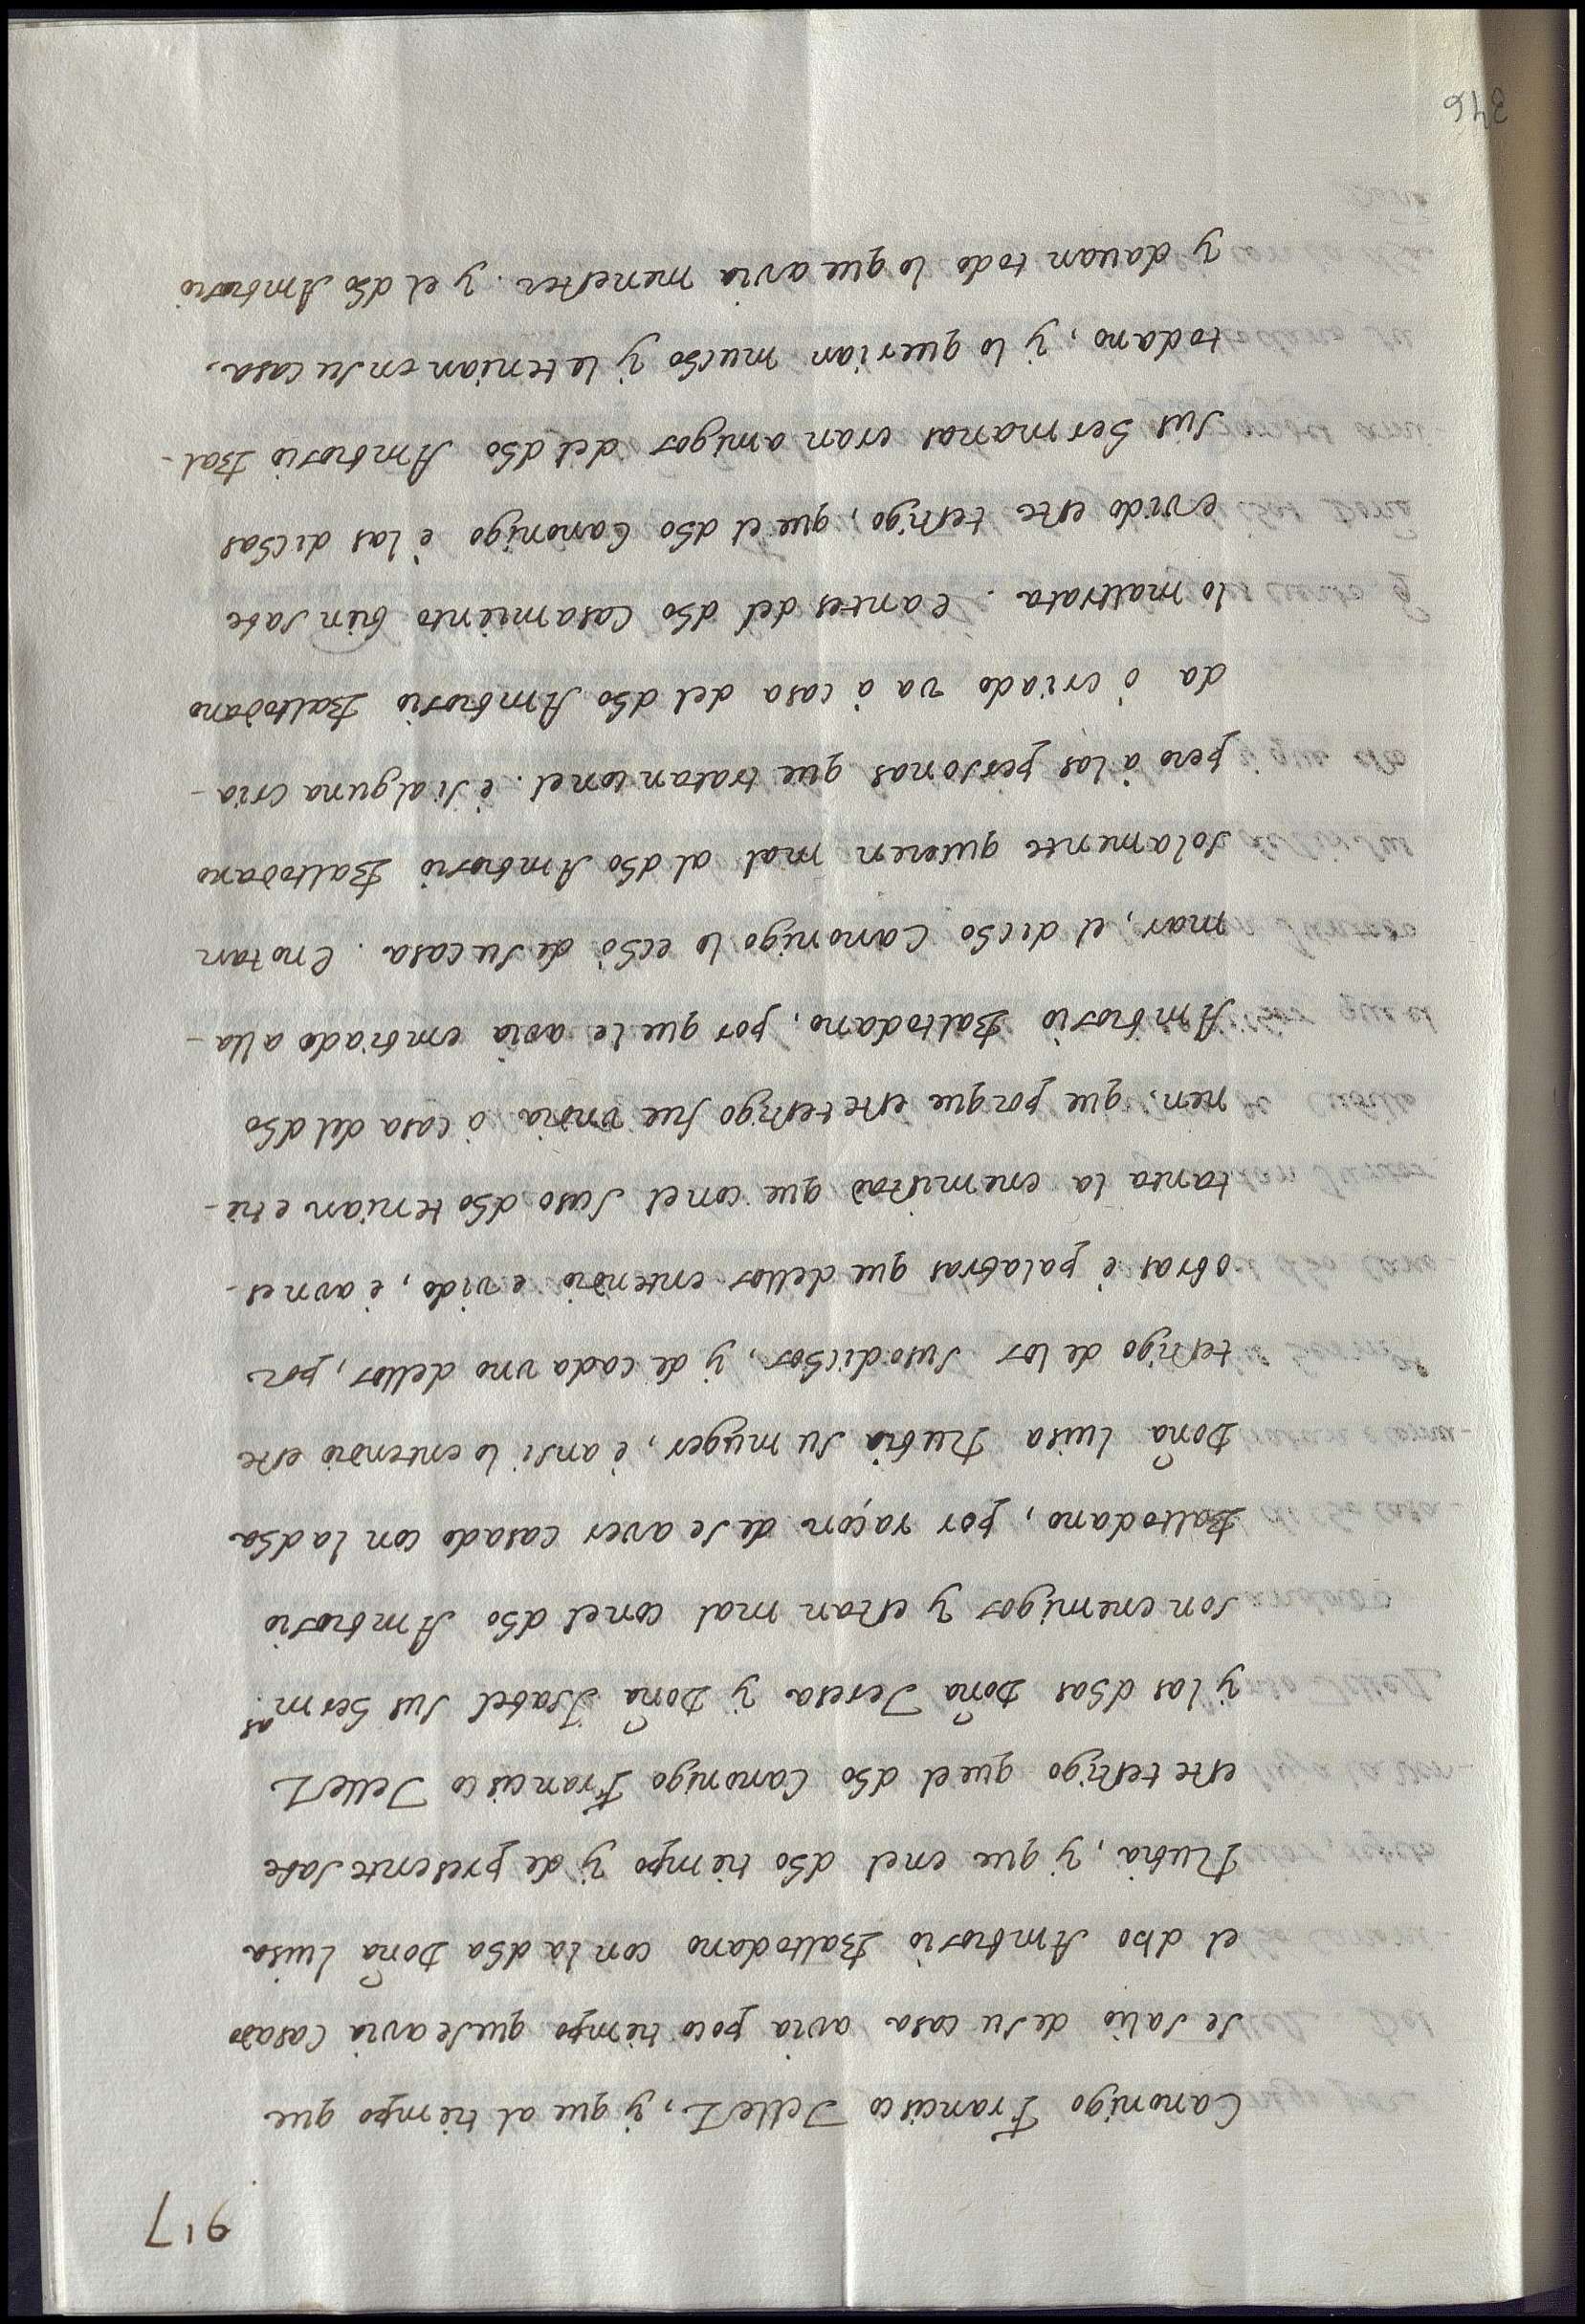 917
Canonigo Francisco Tellez, y que al tiempo que
se salio de su casa avia poco tiempo que se avia casado
el dho Ambrosio Baltodano con la dha Doña Luisa
Nubia, y que en el dho tiempo y de presente sabe
este testigo que el dho Canonigo Francisco Tellez
y las dhas Doña Teresa y Doña Isabel sus herm.as
son enemigos y estan mal con el dho Ambrosio
Baltodano, por raçon de se aver casado con la dha
Doña Luisa Nubia su muger, è ansi lo entendio este
testigo de los susodichos, y de cada uno dellos, por
obras è palabras que dellos entendio e vido, è avn es-
tanta la enemistad que con el suso dho tenian e tie-
nen, que porque este testigo fue vn dia à casa del dho
Ambrosio Baltodano, por que le avia embiado a lla-
mar, el dicho Canonigo lo echò de su casa. E no tan
solamente quieren mal al dho Ambrosio Baltodano
pero à las personas que tratan con el. è si alguna cria-
da ò criado va à casa del dho Ambrosio Baltodano
lo maltrata. E antes del dho Casamiento bien sabe
e vido este testigo, que el dho Canonigo è las dichas
sus hermanas eran amigos del dho Ambrosio Bal-
todano, y lo querian mucho y le tenian en su casa,
y davan todo lo que avia menester. y el dho Ambrosio
346